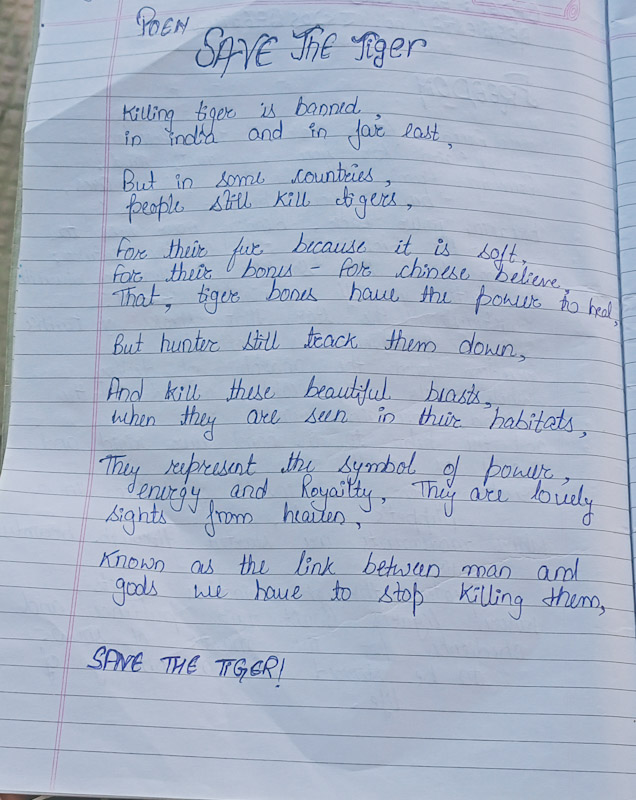 POEN
SAVE The Tiger
Killing tiger is banned,
in india and in far east,
But in some countries,
people still kill tigers,
For their fur because it is soft,
For their bones - for chinese believe,
That, tiger bones have the power to heal,
But hunter still track them down,
And kill these beautiful beasts,
when they are seen in their habitats,
They represent the symbol of power,
energy and Royailty, They are lovely
sights from heaven,
Known as the link between man and
gods we have to stop killing them,
SAVE THE TIGER!